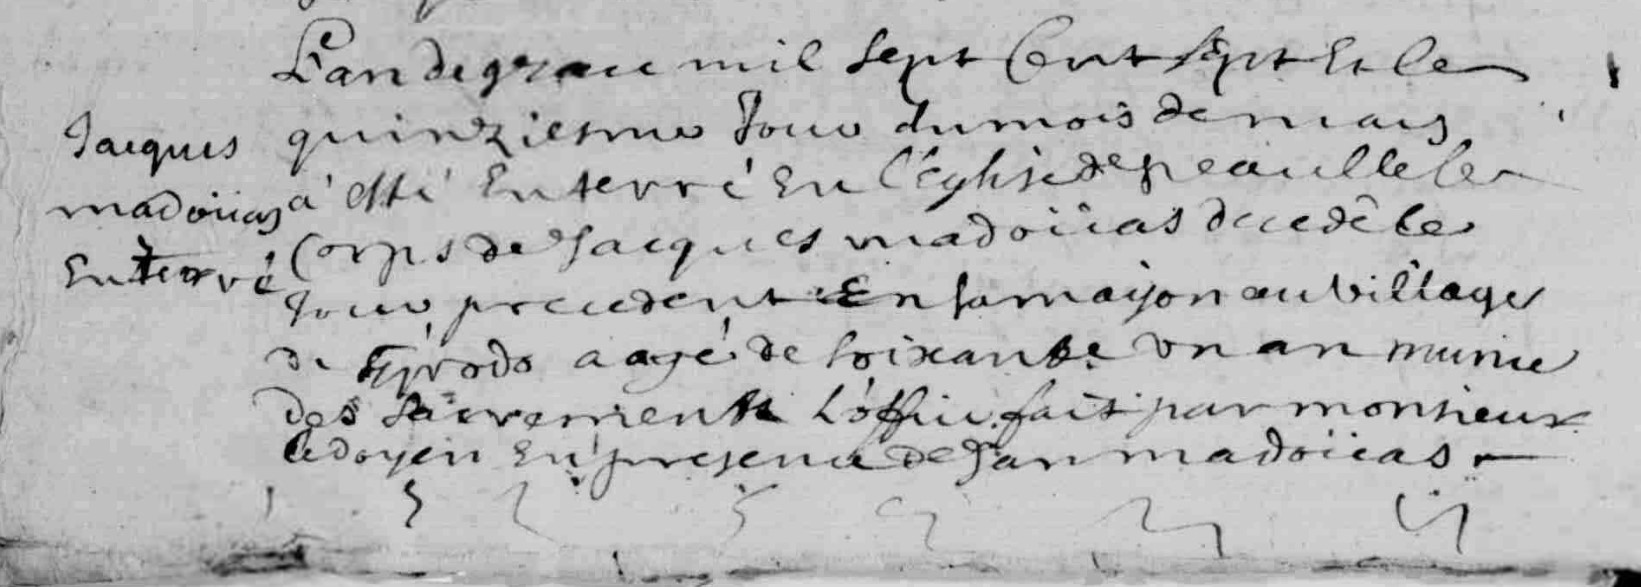 L'an de grace mil sept Cent sept Et le
quinziesme Jour du mois de mars
Jacques
madoüas
Enterré
a esté Enterré En l'Eglise de peaulle le
Corps de Jacques madoüas decedé le
Jour precedent En sa maison au village
de aagé de soixante un an munie
des sacrements l'office fait par monsieur
le doyen En presence de Jan madoüas